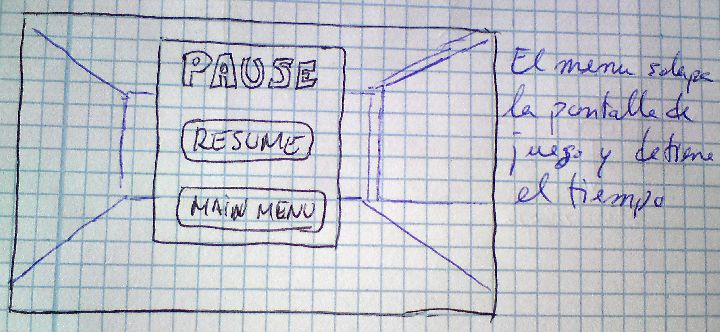 PAUSE
RESUME
MAIN MENU
El menu solapa
la pantalla de
juego y detiene
el tiempo